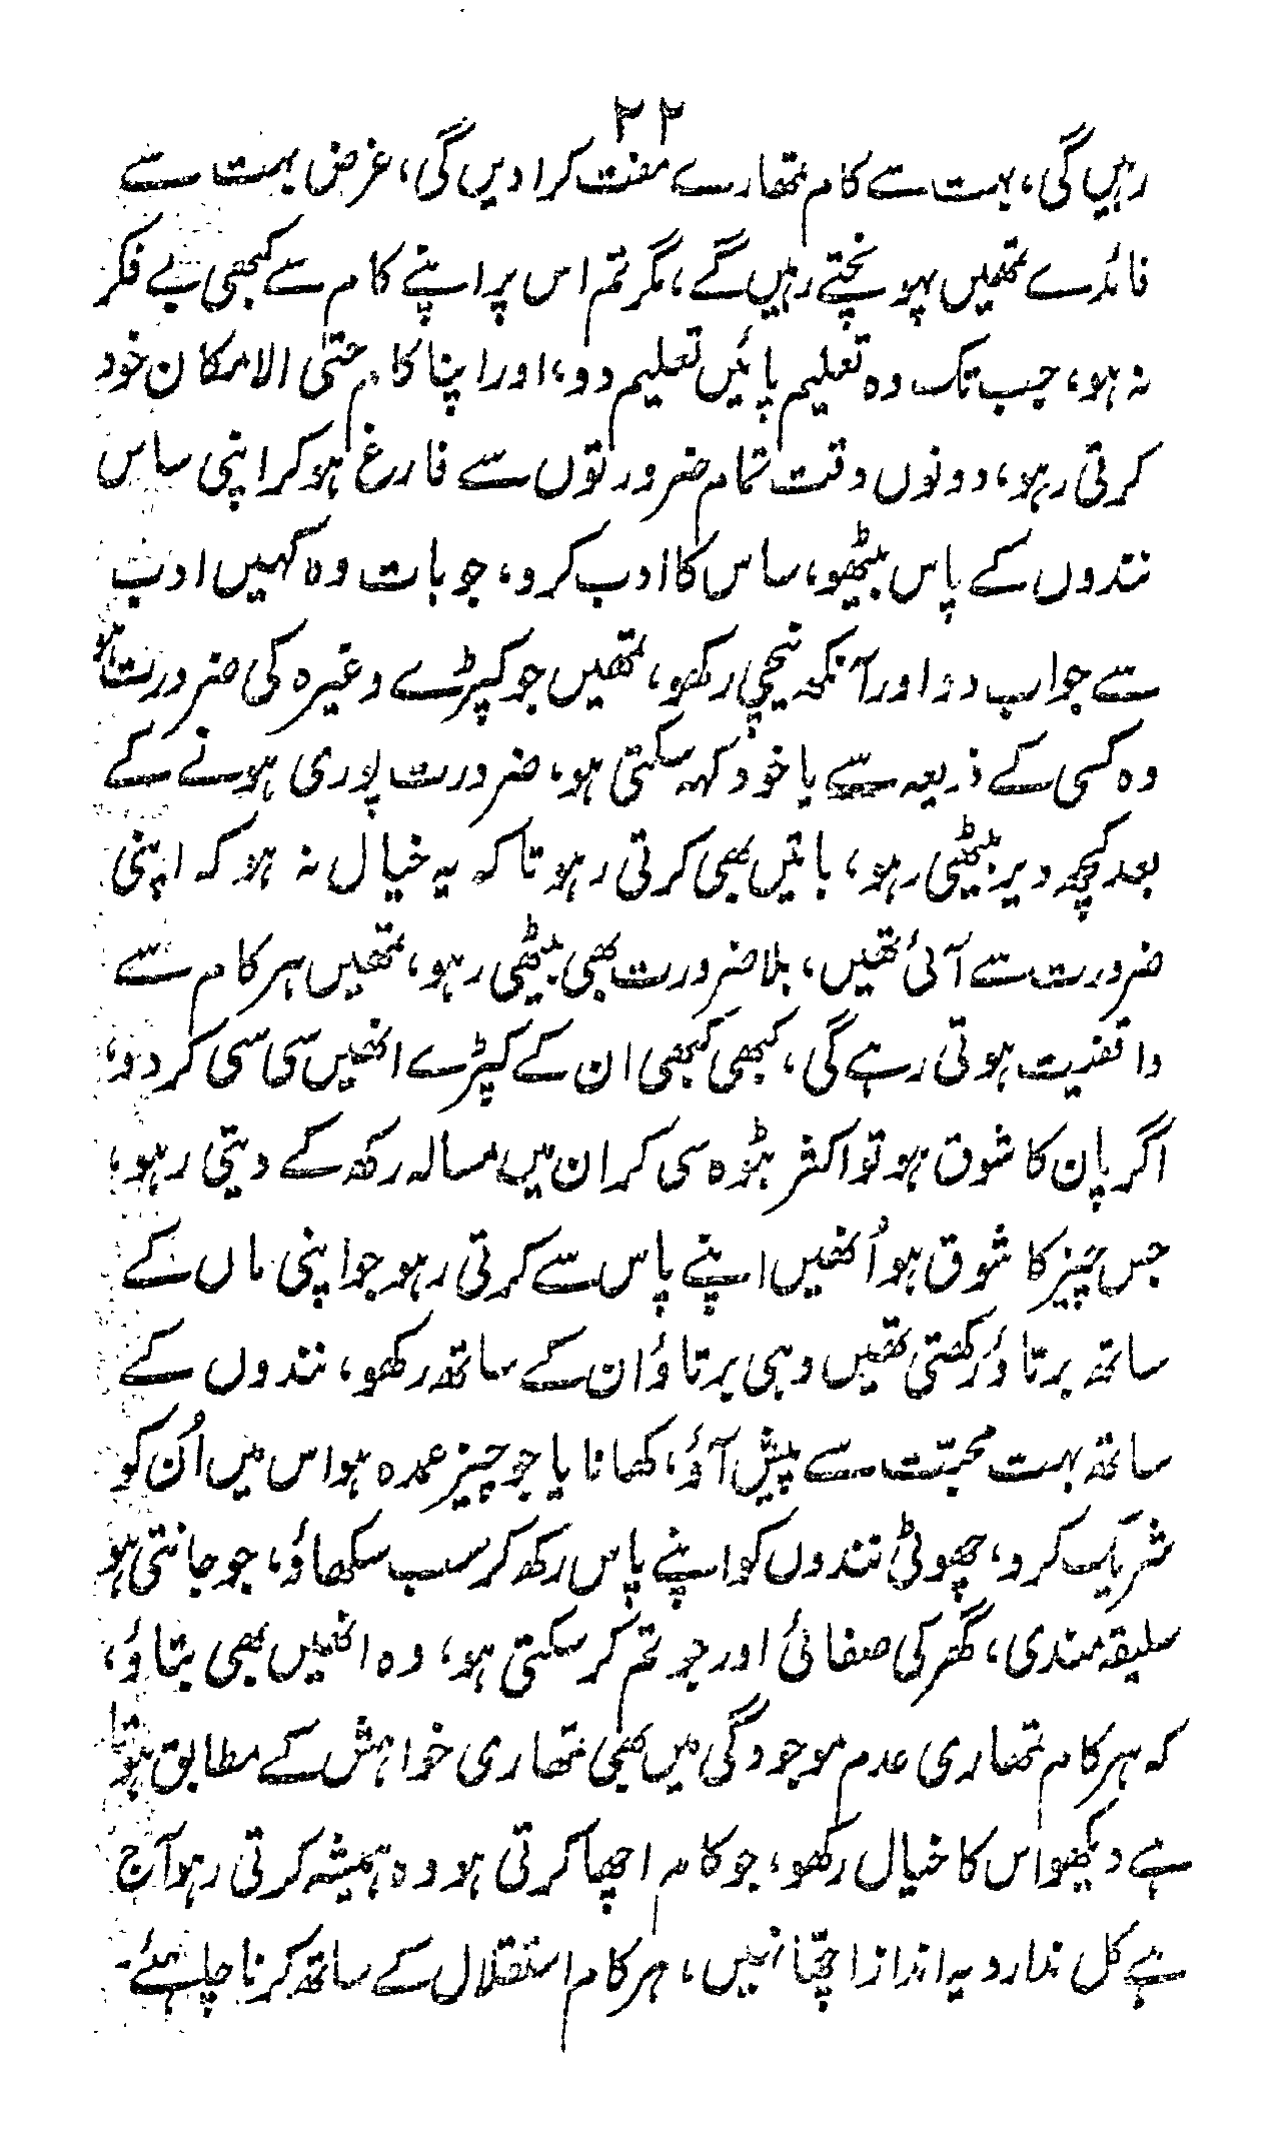 ۲۲
رہیں گی، بہت سے کام تمھارے مفت کرا دیں گی، غرض بہت سے
فائدے تمھیں پہونچتے رہیں گے، مگر تم اس پر اپنے کام سے کبھی بے فکر
نہ ہو، جب تک وہ تعلیم پائیں تعلیم دو، اور اپنا کام حتی الامکان خود
کرتی رہو، دونوں وقت تمام ضرورتوں سے فارغ ہو کر اپنی ساس
نندوں کے پاس بیٹھو، ساس کا ادب کرو، جو بات وہ کہیں ادب
سے جواب دو اور آنکھ نیچی رکھو، تمھیں جو کپڑے وغیرہ کی ضرورت ہو
وہ کسی کے ذریعہ سے یا خود کہہ سکتی ہو، ضرورت پوری ہونے کے
بعد کچھ دیر بیٹھی رہو، باتیں بھی کرتی رہو تاکہ یہ خیال نہ ہو کہ اپنی
ضرورت سے آئی تھیں، بلا ضرورت بھی بیٹھی رہو، تمھیں ہر کام سے
واقفیت ہوتی رہے گی، کبھی کبھی ان کے کپڑے انھیں سی سی کر دو،
اگر پان کا شوق ہو تو اکثر بٹوہ سی کر ان میں مسالہ رکھ کے دیتی رہو،
جس چیز کا شوق ہو اُنھیں اپنے پاس سے کرتی رہو جو اپنی ماں کے
ساتھ برتاؤ رکھتی تھیں وہی برتاؤ ان کے ساتھ رکھو، نندوں کے
ساتھ بہت محبّت سے پیش آؤ، کھانا یا جو چیز عمدہ ہو اس میں اُن کو
شریک کرو، چھوٹی نندوں کو اپنے پاس رکھ کر سب سکھاؤ، جو جانتی ہو
سلیقہ مندی، گھر کی صفائی اور جو تم کر سکتی ہو، وہ انھیں بھی بتاؤ،
کہ ہر کام تمھاری عدم موجودگی میں بھی تمھاری خواہش کے مطابق ہوتا
ہے دیکھو اس کا خیال رکھو، جو کام اچھا کرتی ہو وہ ہمیشہ کرتی رہو آج
ہے کل ندارد یہ انداز اچھّا نہیں، ہر کام استقلال کے ساتھ کرنا چاہئے۔